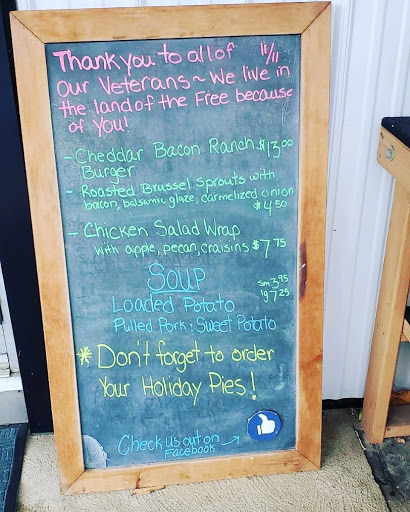 Thank you to all of 11/11
our Veterans ~ We live in
the land of the Free because
of You!
- Cheddar Bacon Ranch $13.00
Burger
- Roasted Brussel Sprouts with
bacon, balsamic glaze, carmelized onion
$4.50
- Chicken Salad Wrap
with apple, pecan, craisins $7.75
Soup
sm 3.95
Loaded Potato lg 7.25
Pulled Pork & Sweet Potato
* Don't forget to order
Your Holiday Pies!
Check us out on →
Facebook